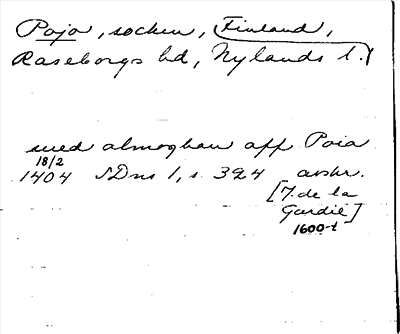 Pojo, socken, Finland,
Raseborgs hd, Nylands l.
med almoghan aff Poia
18/2
1404 SDns 1, s. 394 avskr.
[J. de la
Gardie]
1600-t